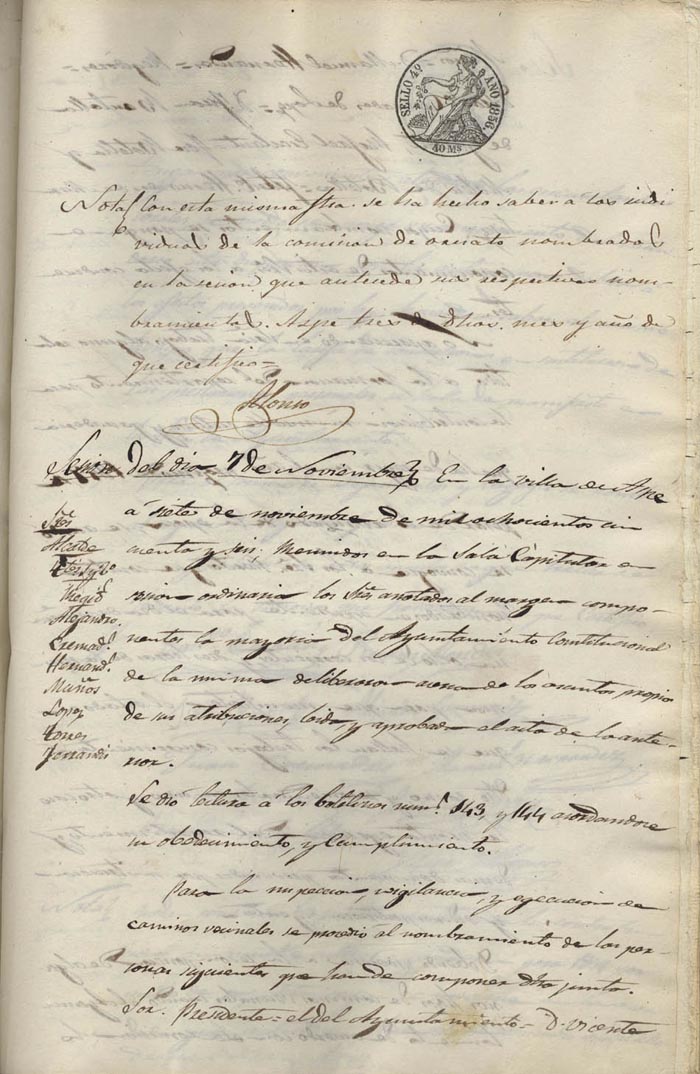 SELLO 4º AÑO 1856.
40 Ms
Nota Con esta misma fha. se ha hecho saber a los indi
viduos de la comision de ornato nombrados
en la sesion que antecede sus respectivos nom-
bramientos. Aspe tres de dhos. mes y año de
que certifico=
Alonso
Sesion del dia 7 de Noviembre En la villa de Aspe
á siete de noviembre de mil ochocientos cin
cuenta y seis: Reunidos en la Sala Capitular en
sesion ordinaria los Sres anotados al margen compo-
nentes la mayoria del Ayuntamiento Constitucional
de la misma deliberaron acerca de los asuntos propios
de sus atribuciones, leida y aprobada el acta de la ante-
rior.
Sres
Alcalde
Regid.s
Alejandro.
Cremad.s
Hernand.s
Muños
Lopez
Torres
Ferrandis
Se dió lectura á los boletines num.s 143, y 144 acordandose
su obedecimiento, y Cumplimiento.
Para la inspeccion, vigilancia, y ejecucion de
caminos vecinales se procedió al nombramiento de las per-
sonas siguientes que han de componer dha junta.
Sor. Presidente = el del Ayuntamiento = D. Vicente